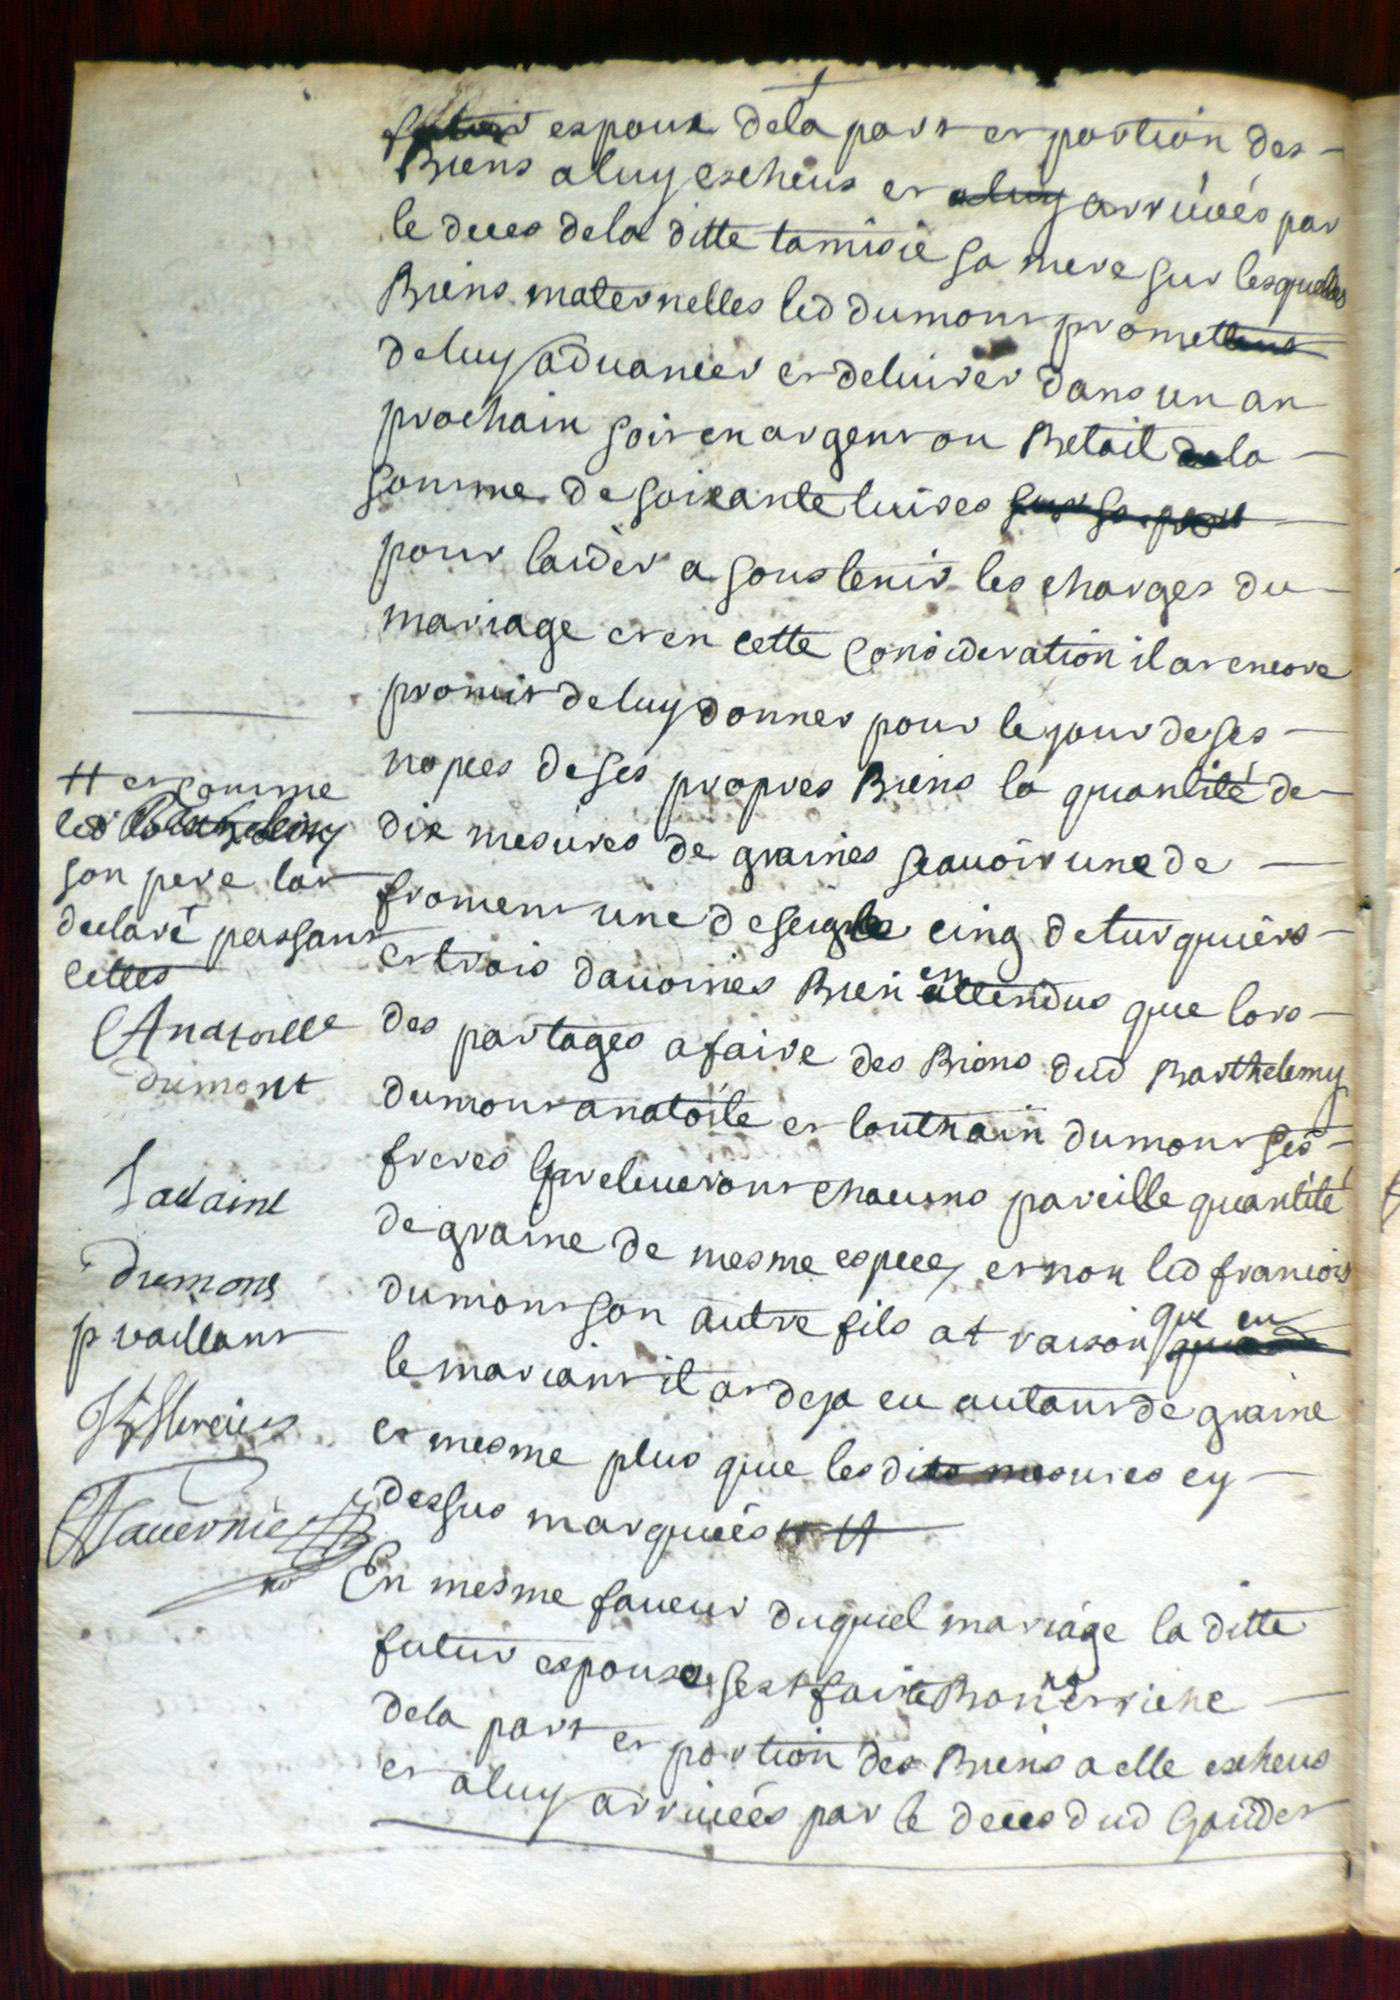 futur espoux dela part et portion des
Biens a luy escheus et a luy arriués par
le deces dela ditte tamisie sa mere sur lesquelles
Biens maternelles led dumont promet
deluy aduancer et deliurer dans un an
prochain soit en argent ou Betail dela
somme de soixante liures sur sa part
pour laider a soustenir les charges du
mariage et en cette Consideration il at encore
promit deluy donner pour le jour de ses
nopces de ses propres Biens la quantité de
dix mesures de graines scauoir une de
froment une de seigle cinq de turquies
et trois dauoines Bien en attendus que lors
des partages a faire des Biens dud Barthelemy
dumont anatoile et louthain dumont ses
freres preleueront chacuns pareille quantité
de graine de mesme espece, et non led francois
dumont son autre fils at raison que en
le mariant il at deja eu autant de graine
et mesme plus que les dites mesures cy
dessus marquées #
En mesme faueur duquel mariage la ditte
futur espouse sest faite Bonne et riche
dela part et portion des Biens a elle escheus
et a luy arriuées par le deces dud
# et comme
led Barthelemy
son pere lat
declaré passant
cettes
Anatoille
dumont
dumont
p vaillant